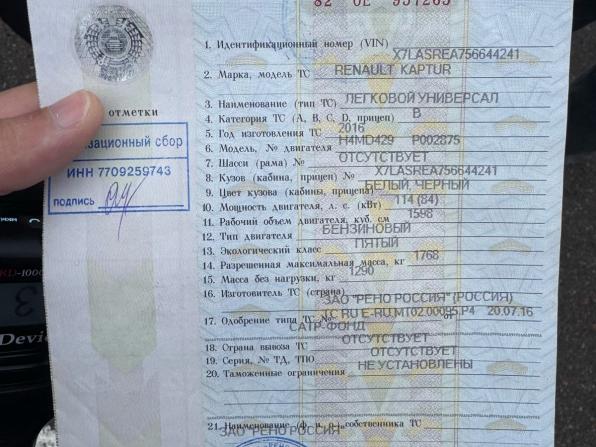 82 ОЕ 957265
1. Идентификационный номер (VIN) X7LASREA756644241
2. Марка, модель ТС RENAULT KAPTUR
3. Наименование (тип ТС) ЛЕГКОВОЙ УНИВЕРСАЛ
4. Категория ТС (А, В, С, D, прицеп) B
5. Год изготовления ТС 2016
6. Модель, № двигателя H4MD429 P002875
7. Шасси (рама) № ОТСУТСТВУЕТ
8. Кузов (кабина, прицеп) № X7LASREA756644241
9. Цвет кузова (кабины, прицепа) БЕЛЫЙ, ЧЕРНЫЙ
10. Мощность двигателя, л. с. (кВт) 114 (84)
11. Рабочий объем двигателя, куб. см 1598
12. Тип двигателя БЕНЗИНОВЫЙ
13. Экологический класс ПЯТЫЙ
14. Разрешенная максимальная масса, кг 1768
15. Масса без нагрузки, кг 1290
16. Изготовитель ТС (страна) ЗАО "РЕНО РОССИЯ" (РОССИЯ)
17. Одобрение типа ТС № ТС RU E-RU.MT02.00095.P4 от 20.07.16
САТР-ФОНД
18. Страна вывоза ТС ОТСУТСТВУЕТ
19. Серия, № ТД, ТПО ОТСУТСТВУЕТ
20. Таможенные ограничения НЕ УСТАНОВЛЕНЫ
21. Наименование (ф. и. о.) собственника ТС
ЗАО "РЕНО РОССИЯ"
отметки
зационный сбор
ИНН 7709259743
подпись
Devic